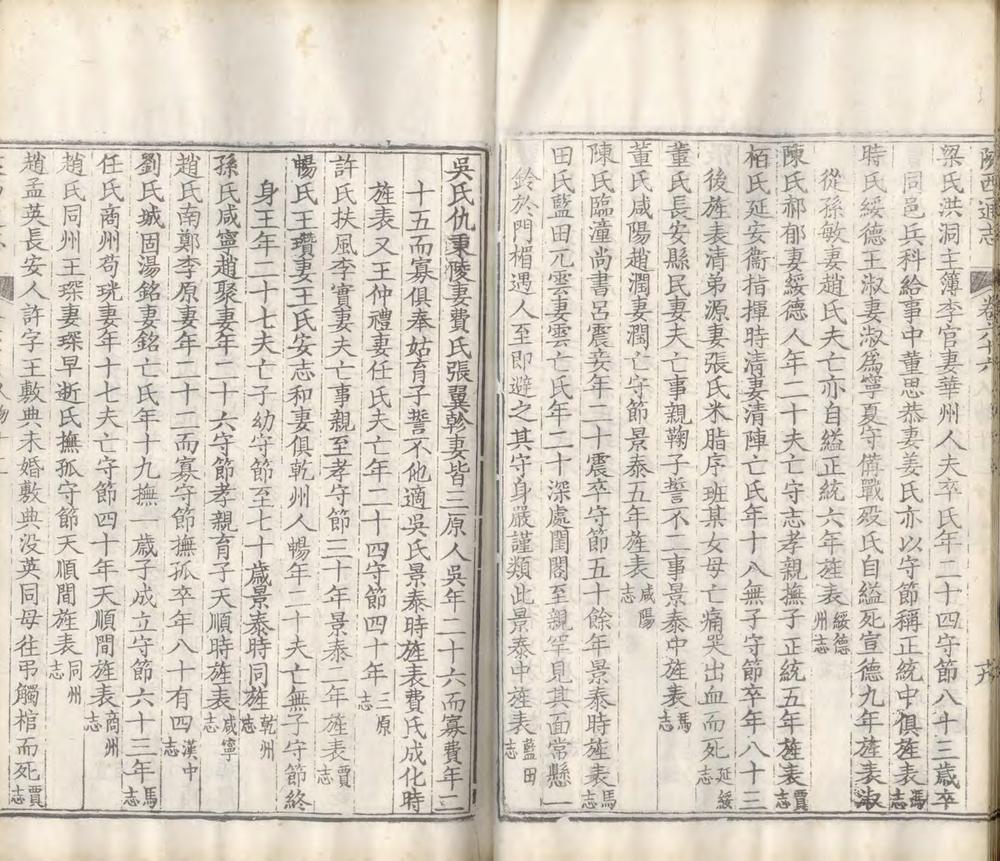 陝西通志 卷六十六
梁氏洪洞主簿李官妻華州人夫卒氏年二十四守節八十三歲卒
同邑兵科給事中董思恭妻姜氏亦以守節稱正統中俱旌表馮志
時氏綏德王淑妻淑爲寧夏守備戰歿氏自縊死宣德九年旌表淑
從孫敏妻趙氏夫亡亦自縊正統六年旌表綏德州志
陳氏郝郁妻綏德人年二十夫亡守志孝親撫子正統五年旌表賈志
栢氏延安衞指揮時清妻清陣亡氏年十八無子守節卒年八十三
後旌表清弟源妻張氏米脂序班某女母亡痛哭出血而死延綏志
董氏長安縣民妻夫亡事親鞠子誓不二事景泰中旌表馬志
董氏咸陽趙潤妻潤亡守節景泰五年旌表咸陽志
陳氏臨潼尚書呂震妾年二十震卒守節五十餘年景泰時旌表馬志
田氏藍田亢雲妻雲亡氏年二十深處閨閤至親罕見其面常懸一
鈴於門楣遇人至即避之其守身嚴謹類此景泰中旌表藍田志
吳氏仇秉陵妻費氏張翼軫妻皆三原人吳年二十六而寡費年二
十五而寡俱奉姑育子誓不他適吳氏景泰時旌表費氏成化時
旌表又王仲禮妻任氏夫亡年二十四守節四十年三原志
許氏扶風李實妻夫亡事親至孝守節三十年景泰二年旌表賈志
暢氏王瓚妻王氏安志和妻俱乾州人暢年二十夫亡無子守節終
身王年二十七夫亡子幼守節至七十歲景泰時同旌乾州志
孫氏咸寧趙聚妻年二十六守節孝親育子天順時旌表咸寧志
趙氏南鄭李原妻年二十二而寡守節撫孤卒年八十有四漢中志
劉氏城固湯銘妻銘亡氏年十九撫一歲子成立守節六十三年馬志
任氏商州苟珖妻年十七夫亡守節四十年天順間旌表商州志
趙氏同州王琛妻琛早逝氏撫孤守節天順間旌表同州志
趙孟英長安人許字王敷典未婚敷典没英同母往弔觸棺而死賈志